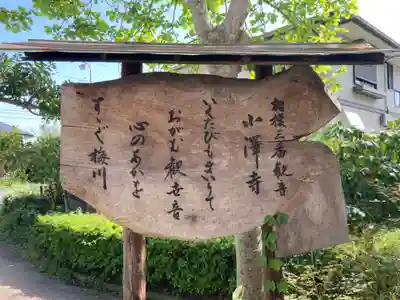 相模三番観音
小澤寺
いくたびもきりて
おがむ観世音
心のあかを
すゝぐ梅川